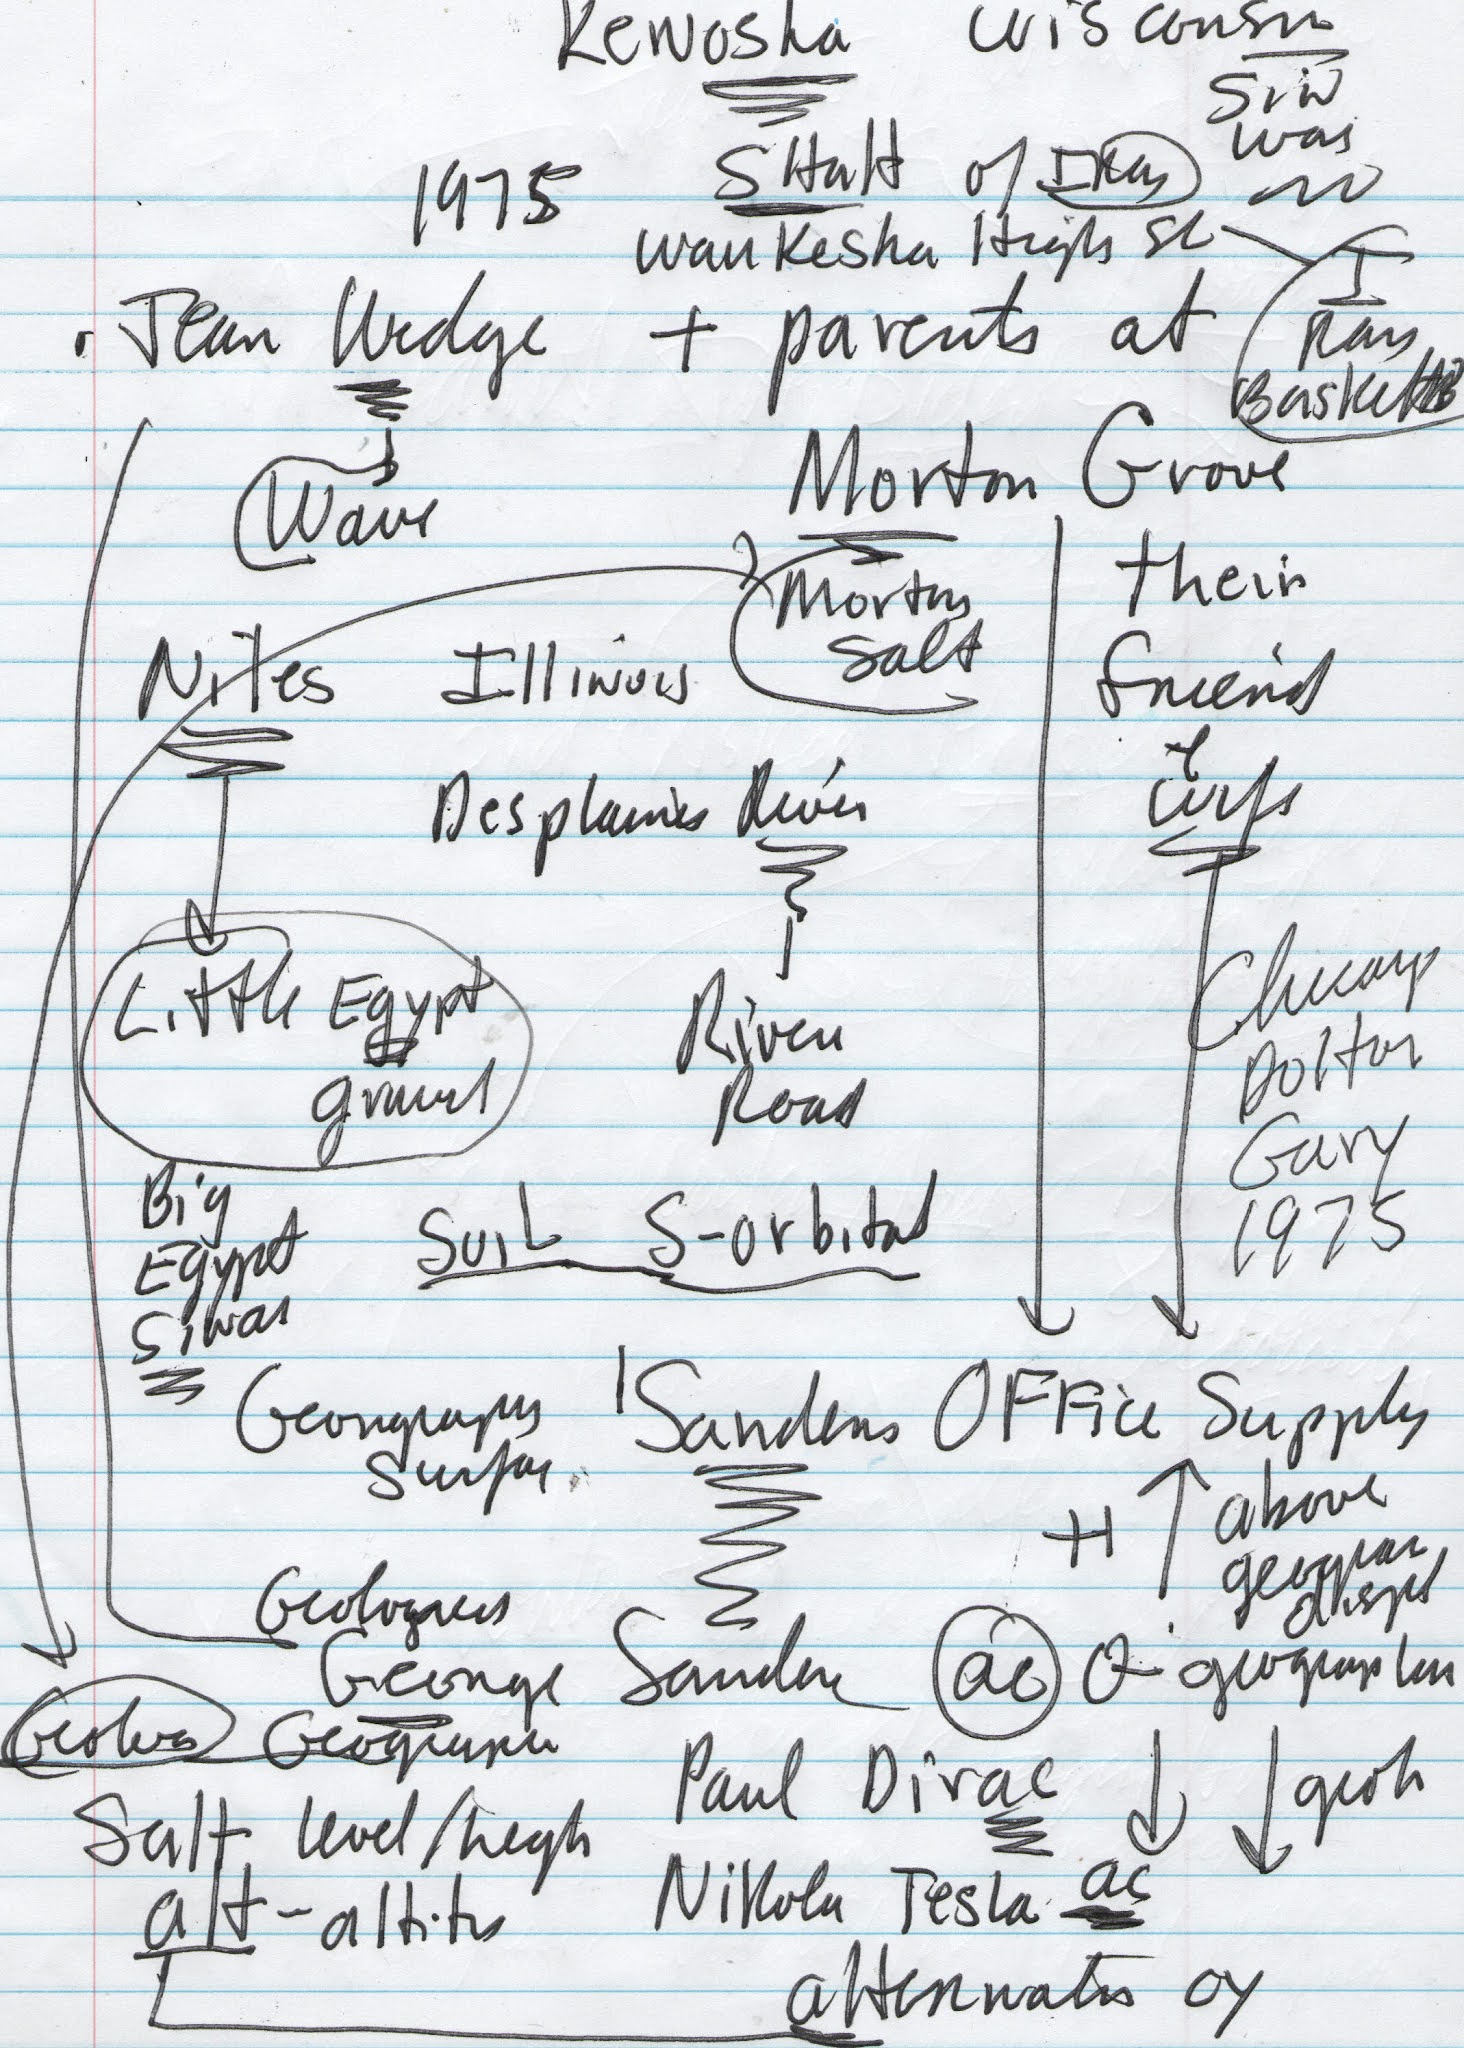 Kenosha Wisconsin
Sin
was
1975 SHaH of IRan
Waukesha High Sc
I
Ran
Basket
Jean Wedge + parents at
Wave
Morton Grove
Morton
Salt
their
friend
+
wife
Niles Illinois
Desplaines River
Little Egypt
gravel
River
Road
Chicago
Dolton
Gary
1975
Big
Egypt
Siwas
Soil S-orbital
Geography
Surface
Sanders OFFice Supply
H above
geogra
Geologies
George Sander ac geographer
Geographer
Paul Dirac geol
Salt level/heigh
Nikola Tesla ac
alt-
alternates